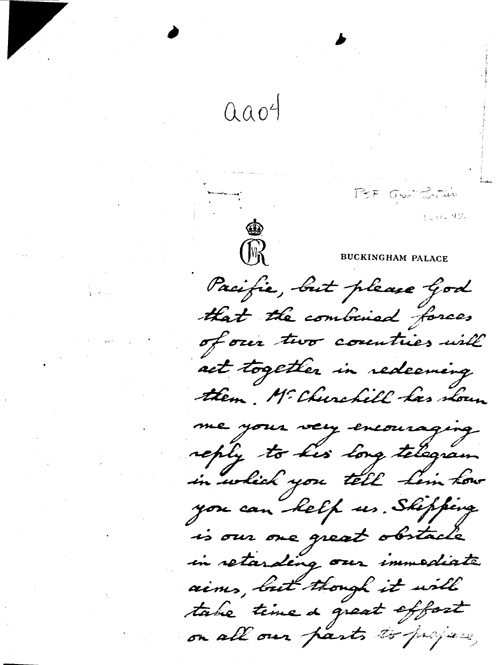 aa04
PSF Great Britain
GVIR
BUCKINGHAM PALACE
Pacific, but please God
that the combined forces
of our two countries will
act together in redeeming
them. Mr. Churchill has shown
me your very encouraging
reply to his long telegram
in which you tell him how
you can help us. Shipping
is our one great obstacle
in retarding our immediate
aims, but though it will
take time & great effort
on all our parts to prepare,